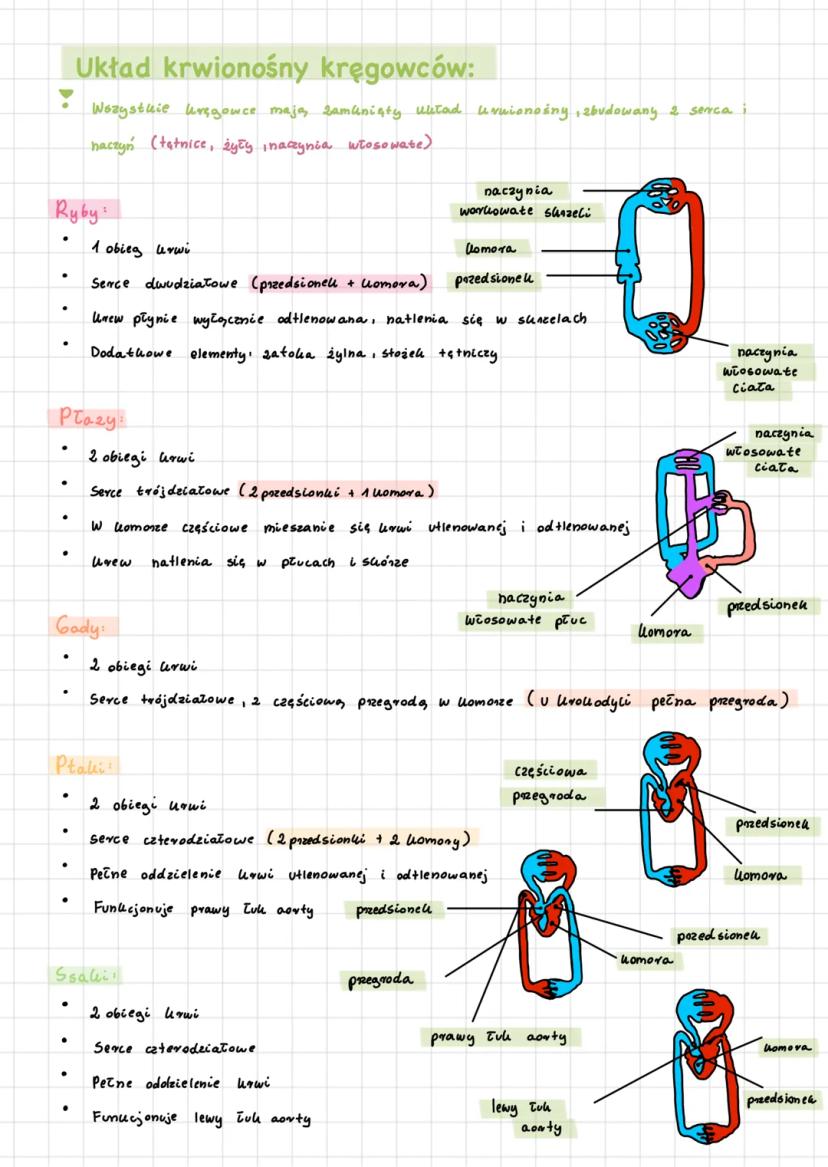 Układ krwionośny kręgowców:
Wszystkie kręgowce mają zamknięty układ krwionośny, zbudowany z serca i
naczyń (tętnice, żyły, naczynia włosowate)
Ryby:
• 1 obieg krwi
• Serce dwudziałowe (przedsionek + komora)
• Krew płynie wyłącznie odtlenowana, natlenia się w skrzelach
• Dodatkowe elementy: zatoka żylna, stożek tętniczy
naczynia
workowate skrzeli
komora
przedsionek
naczynia
włosowate
ciała
Płazy:
• 2 obiegi krwi
• Serce trójdziałowe (2 przedsionki + 1 komora)
• W komorze częściowe mieszanie się krwi utlenowanej i odtlenowanej
• Krew natlenia się w płucach i skórze
naczynia
włosowate
ciała
naczynia
włosowate płuc
komora
przedsionek
Gady:
• 2 obiegi krwi
• Serce trójdziałowe, z częściową przegrodą w komorze (u krokodyli pełna przegroda)
częściowa
przegroda
przedsionek
komora
Ptaki:
• 2 obiegi krwi
• Serce czterodziałowe (2 przedsionki + 2 komory)
• Pełne oddzielenie krwi utlenowanej i odtlenowanej
• Funkcjonuje prawy łuk aorty
przedsionek
przedsionek
komora
przegroda
prawy łuk aorty
Ssaki:
• 2 obiegi krwi
• Serce czterodziałowe
• Pełne oddzielenie krwi
• Funkcjonuje lewy łuk aorty
komora
przedsionek
lewy łuk
aorty